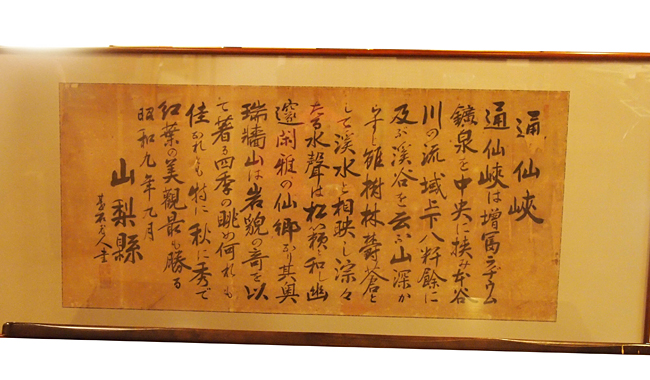 通仙峽
通仙峽は増冨ラヂウム
鑛泉を中央に挟み本谷
川の流域上下八粁餘に
及ぶ溪谷を云ふ山深か
らずと雖樹林欝蒼と
して溪水と相映し淙々
たる水聲は松籟に和し幽
邃閑雅の仙郷なり其奥
瑞牆山は岩貌の奇を以
て著る四季の眺め何れも
佳なれども特に秋に秀で
紅葉の美觀最も勝る
昭和九年九月
山梨縣